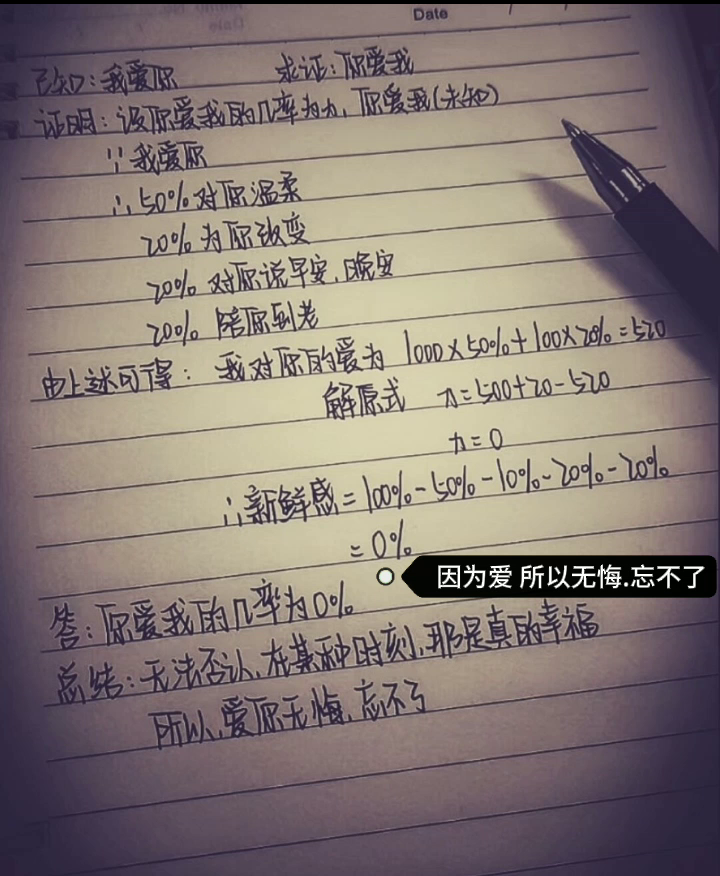 Date
已知:我爱你 求证:你爱我
证明:设你爱我的几率为n,你爱我(未知)
∵我爱你
∴50%对你温柔
20%为你改变
20%对你说早安.晚安
20%陪你到老
由上述可得:我对你的爱为 1000×50%+100×20%=520
解原式 n=500+20-520
n=0
∴新鲜感=100%-50%-10%-20%-20%
=0%
因为爱 所以无悔.忘不了
答:你爱我的几率为0%
总结:无法否认.在某种时刻,那是真的幸福
所以,爱你无悔,忘不了